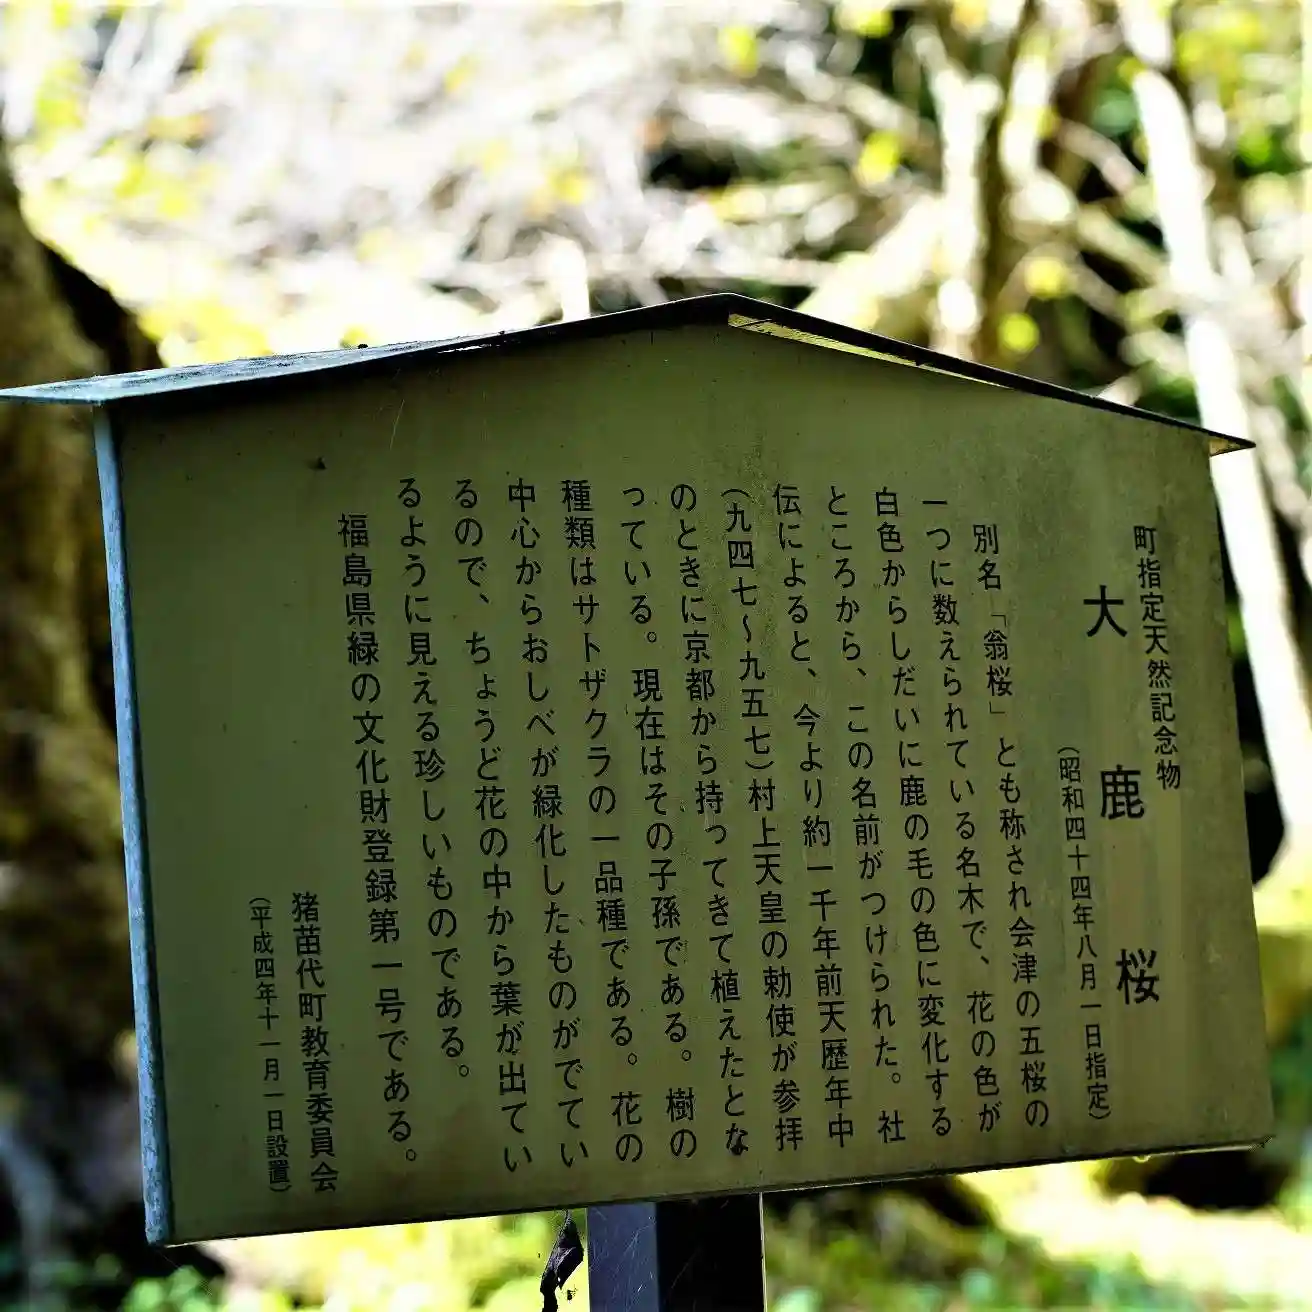 町指定天然記念物
大鹿桜
（昭和四十四年八月一日指定）
別名「翁桜」とも称され会津の五桜の
一つに数えられている名木で、花の色が
白色からしだいに鹿の毛の色に変化する
ところから、この名前がつけられた。社
伝によると、今より約一千年前天歴年中
（九四七〜九五七）村上天皇の勅使が参拝
のときに京都から持ってきて植えたとな
っている。現在はその子孫である。樹の
種類はサトザクラの一品種である。花の
中心からおしべが緑化したものがでてい
るので、ちょうど花の中から葉が出てい
るように見える珍しいものである。
福島県緑の文化財登録第一号である。
猪苗代町教育委員会
（平成四年十一月一日設置）